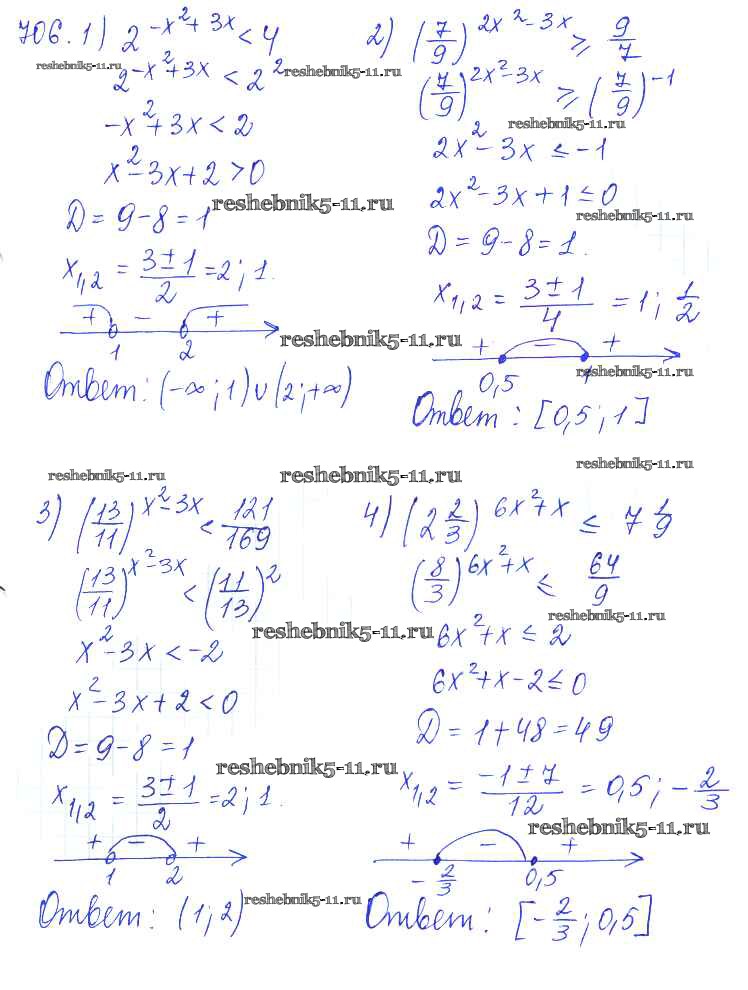 706. 1) 2^{-x^2+3x} < 4
reshebnik5-11.ru
2^{-x^2+3x} < 2^2
reshebnik5-11.ru
-x^2+3x < 2
x^2-3x+2 > 0
D = 9-8 = 1
reshebnik5-11.ru
x_{1,2} = \frac{3±1}{2} = 2; 1.
+ - +
1 2
reshebnik5-11.ru
Ответ: (-∞; 1) ∪ (2; +∞)
2) (\frac{7}{9})^{2x^2-3x} ≥ \frac{9}{7}
(\frac{7}{9})^{2x^2-3x} ≥ (\frac{7}{9})^{-1}
reshebnik5-11.ru
2x^2-3x ≤ -1
2x^2-3x+1 ≤ 0
reshebnik5-11.ru
D = 9-8 = 1.
x_{1,2} = \frac{3±1}{4} = 1; \frac{1}{2}
+ - +
0,5 1
reshebnik5-11.ru
Ответ: [0,5; 1]
reshebnik5-11.ru
reshebnik5-11.ru
reshebnik5-11.ru
3) (\frac{13}{11})^{x^2-3x} < \frac{121}{169}
(\frac{13}{11})^{x^2-3x} < (\frac{11}{13})^2
x^2-3x < -2
reshebnik5-11.ru
x^2-3x+2 < 0
D = 9-8 = 1
reshebnik5-11.ru
x_{1,2} = \frac{3±1}{2} = 2; 1.
+ - +
1 2
Ответ: (1; 2)
reshebnik5-11.ru
4) (2\frac{2}{3})^{6x^2+x} ≤ 7\frac{1}{9}
(\frac{8}{3})^{6x^2+x} ≤ \frac{64}{9}
reshebnik5-11.ru
6x^2+x ≤ 2
6x^2+x-2 ≤ 0
D = 1+48 = 49
x_{1,2} = \frac{-1±7}{12} = 0,5; -\frac{2}{3}
reshebnik5-11.ru
+ - +
-\frac{2}{3} 0,5
Ответ: [-\frac{2}{3}; 0,5]